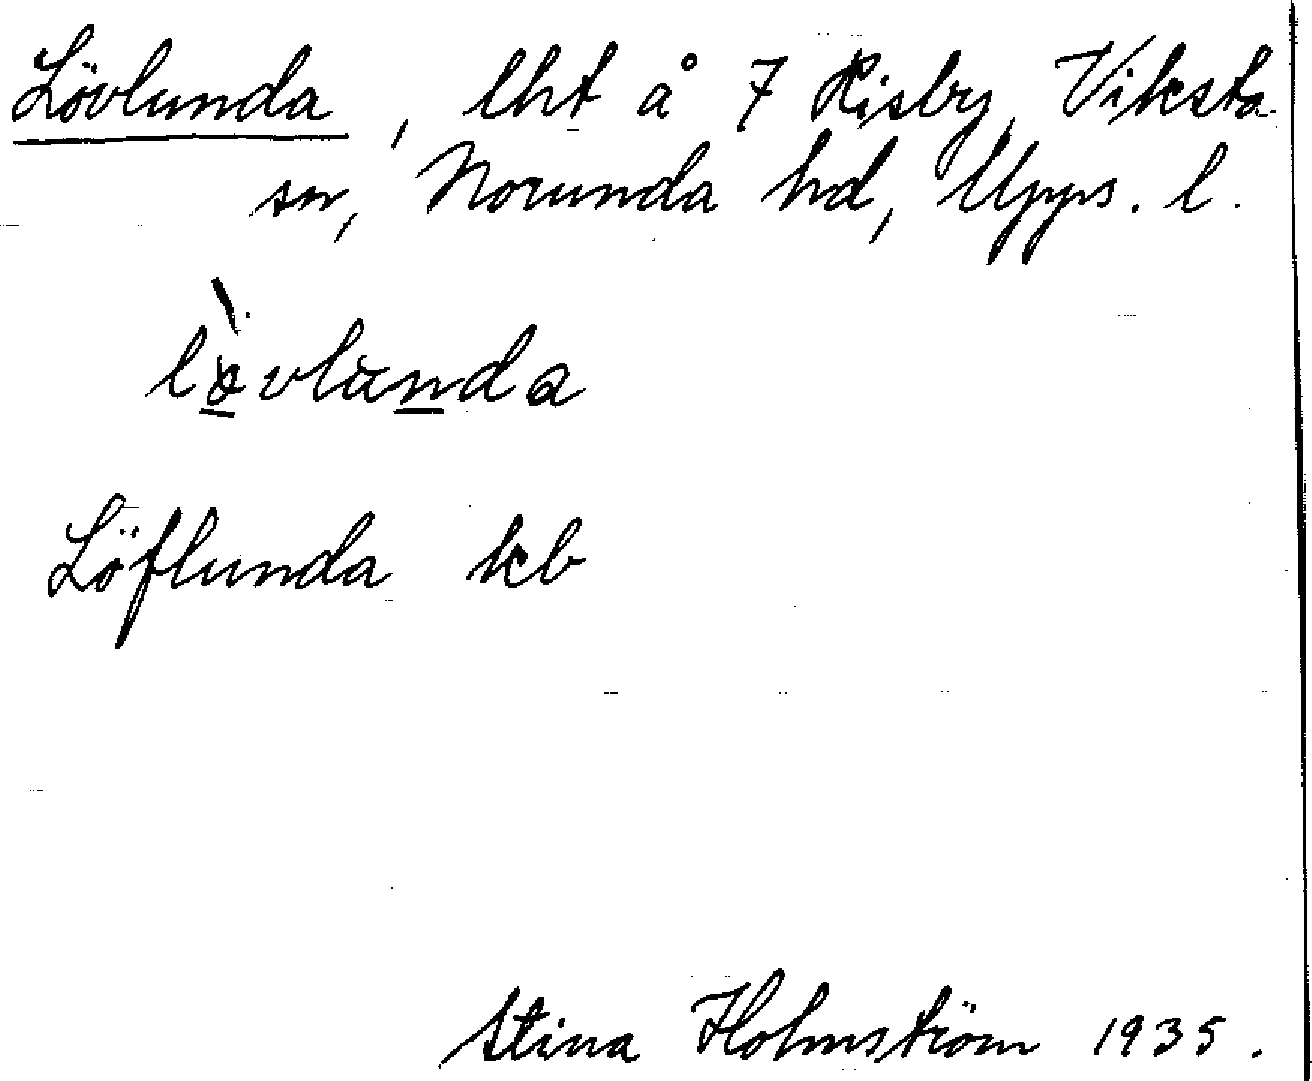 Lövlunda, lht å 7 Risby, Viksta
sn, Norunda hd, Upps. l.
lö̀vlunda
Löflunda kb
Stina Holmström 1935.